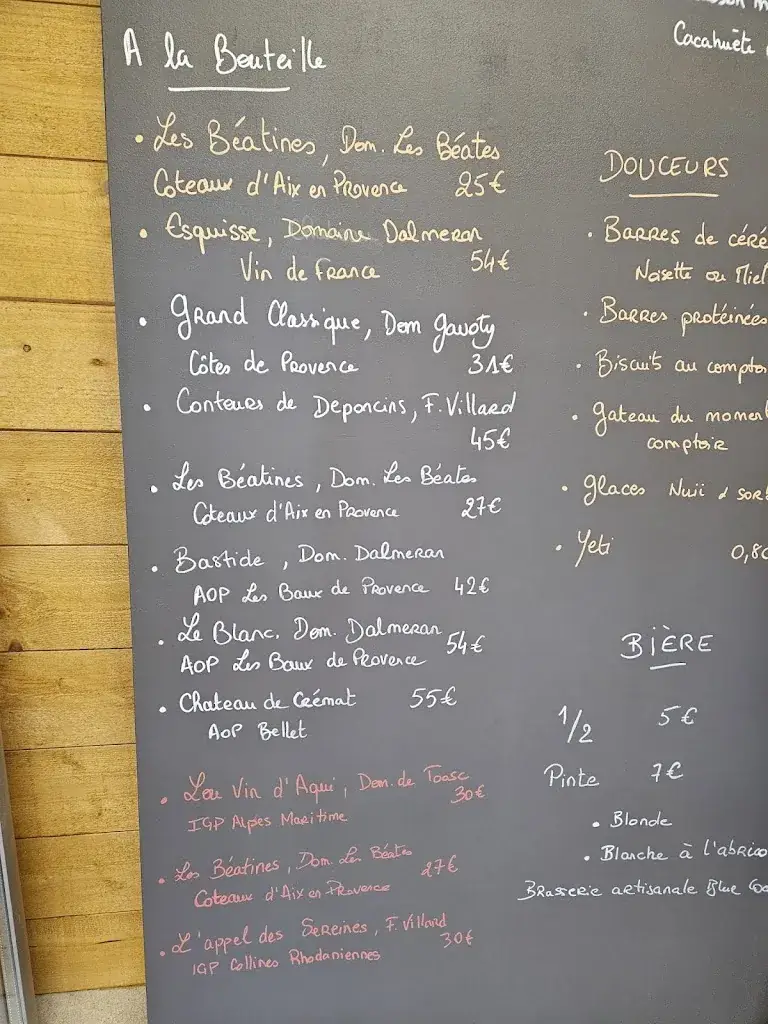 A la Bouteille
• Les Béatines, Dom. Les Béates
Coteaux d'Aix en Provence 25€
• Esquisse, Domaine Dalmeran
Vin de France 54€
• Grand Classique, Dom Gavoty
Côtes de Provence 31€
• Conteurs de Deponcins, F. Villard
45€
• Les Béatines, Dom. Les Béates
Coteaux d'Aix en Provence 27€
• Bastide, Dom. Dalmeran
AOP Les Baux de Provence 42€
• Le Blanc. Dom. Dalmeran 54€
AOP Les Baux de Provence
• Chateau de Crémat 55€
AOP Bellet
• Lou Vin d'Aqui, Dom. de Toasc
30€
IGP Alpes Maritime
• Les Béatines, Dom. Les Béates
27€
Coteaux d'Aix en Provence
• L'appel des Sereines, F. Villard
30€
IGP Collines Rhodaniennes
Cacahuète
DOUCEURS
• Barres de céré
Noisette ou Miel
• Barres protéinées
• Biscuits au comptoi
• Gateau du momen
comptoir
• Glaces Nuii & sor
• Yeti 0,80
BIÈRE
1/2 5€
Pinte 7€
• Blonde
• Blanche à l'abrico
Brasserie artisanale Blue